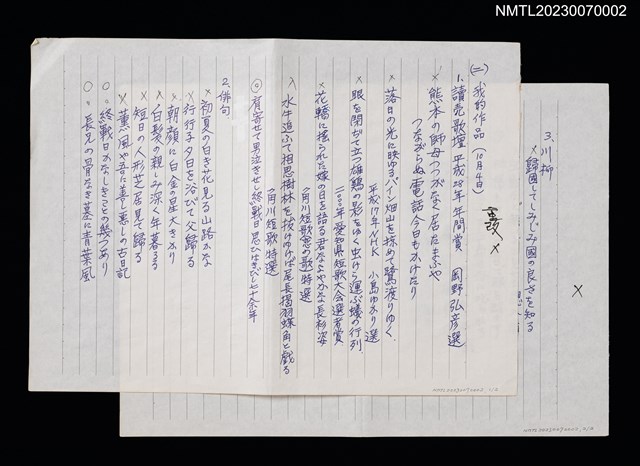 NMTL20230070002
(二) 我的作品 (10月4日)
重改 ×
1. 讀売歌壇 平成28年 年間賞 岡野弘彦選
× 熊本の師母つつがなく居たまふや
つながらぬ電話今日もかけたり
× 落日の光に映ゆるパイン畑山を掠めて鷺渡りゆく
平成17年NHK 小島ゆかり選
× 眼を閉ぢて立つ雄鶏の影をゆく虫けら運ぶ蟻の行列
二〇〇〇年愛知県短歌大会選者賞
× 花轎に揺られた嫁の日を語る君なよやかな長杉姿
(角川短歌 恋の歌)特選
水牛追ふて相思樹林を抜けゆけば尾長揚羽蝶角と戯る
(角川短歌特選
肩寄せて男泣きせし終戦日忍びはきびし七十余年
2. 俳句
× 初夏の白き花見る山路かな
× 行行子夕日を浴びて父帰る
× 朝顔に白金の星大きかり
× 白髪の親しみ深く年暮るる
× 短日の人形芝居見て帰る
× 薫風や吾に善し悪しの古日記
○ 終戦日かなしきことの無つあり
○ 長兄の骨なき墓に青葉風
3. 川柳
× 帰国してしみじみ国の良さを知る
×
NMTL20230070002
NMTL20230070002